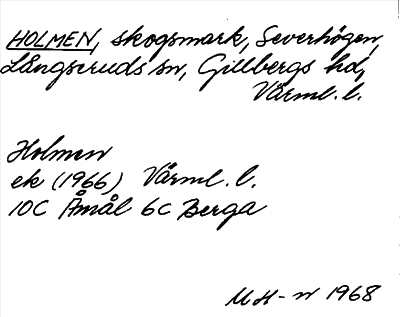 HOLMEN, skogsmark, Severhögen,
Långseruds sn, Gillbergs hd,
Värml. l.
Holmen
ek (1966) Värml. l.
10C Åmål 6C Berga
MH-n 1968